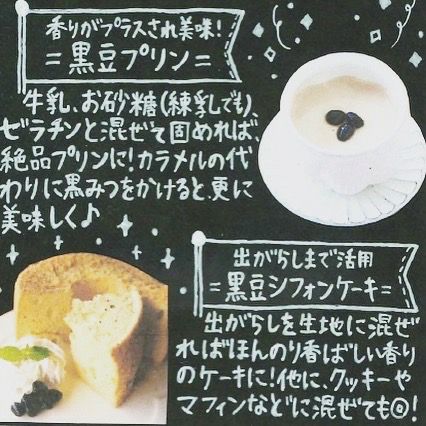 香りがプラスされ美味!
=黒豆プリン=
牛乳、お砂糖(練乳でも)
ゼラチンと混ぜて固めれば、
絶品プリンに!カラメルの代
わりに黒みつをかけると、更に
美味しく♪
出がらしまで活用
=黒豆シフォンケーキ=
出がらしを生地に混ぜ
ればほんのり香ばしい香り
のケーキに!他に、クッキーや
マフィンなどに混ぜても◎!